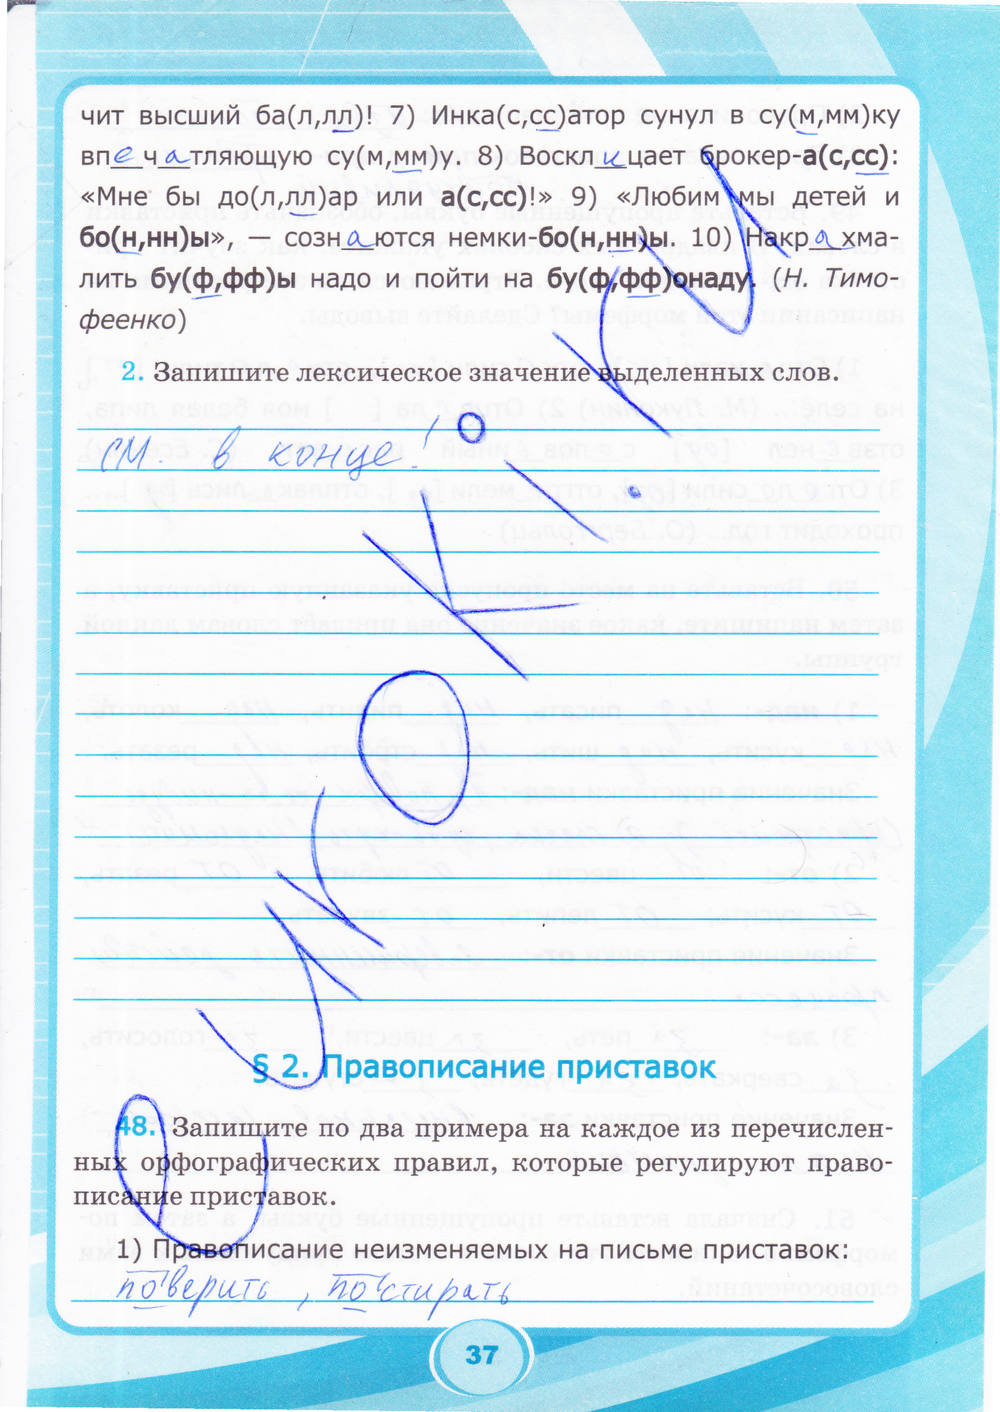 чит высший ба(л,лл)! 7) Инка(с,сс)атор сунул в су(м,мм)ку
впечатляющую су(м,мм)у. 8) Восклицает брокер-а(с,сс):
«Мне бы до(л,лл)ар или а(с,сс)!» 9) «Любим мы детей и
бо(н,нн)ы», — сознаются немки-бо(н,нн)ы. 10) Накрахма-
лить бу(ф,фф)ы надо и пойти на бу(ф,фф)онаду. (Н. Тимо-
феенко)
2. Запишите лексическое значение выделенных слов.
см. в конце!
§ 2. Правописание приставок
48. Запишите по два примера на каждое из перечислен-
ных орфографических правил, которые регулируют право-
писание приставок.
1) Правописание неизменяемых на письме приставок:
поверить, постирать
37